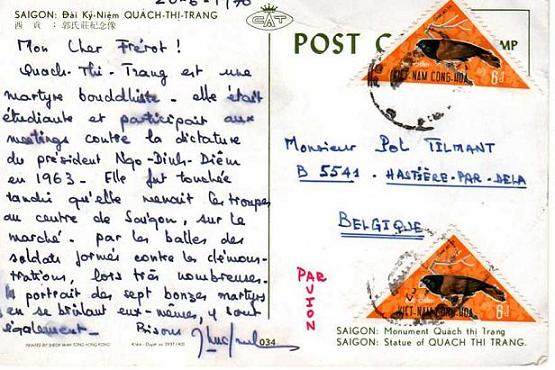 20-6-1970
SAIGON: Đài Kỷ-Niệm QUÁCH-THỊ-TRANG
西 貢 : 郭氏莊紀念像
CAT
POST C MP
Mon Cher Frérot !
Quach-Thi-Trang est une
martyre bouddhiste - elle était
étudiante et participait aux
meetings contre la dictature
du président Ngo-Dinh-Diêm
en 1963. Elle fut touchée
tandis qu'elle menait les troupes
au centre de Saigon, sur le
marché. par les balles des
soldats formés contre les démons-
trations, lors très nombreuses.
le portrait des sept bonzes martyrs
en se brûlant eux-mêmes, y sont
également - Bisous
VIỆT-NAM CỘNG-HÒA 6đ
Monsieur Pol TILMANT
B 5541 - HASTIÈRE-PAR-DELA
BELGIQUE
PAR
AVION
VIỆT-NAM CỘNG-HÒA 6đ
034
SAIGON: Monument Quách thị Trang
SAIGON: Statue of QUACH THI TRANG.